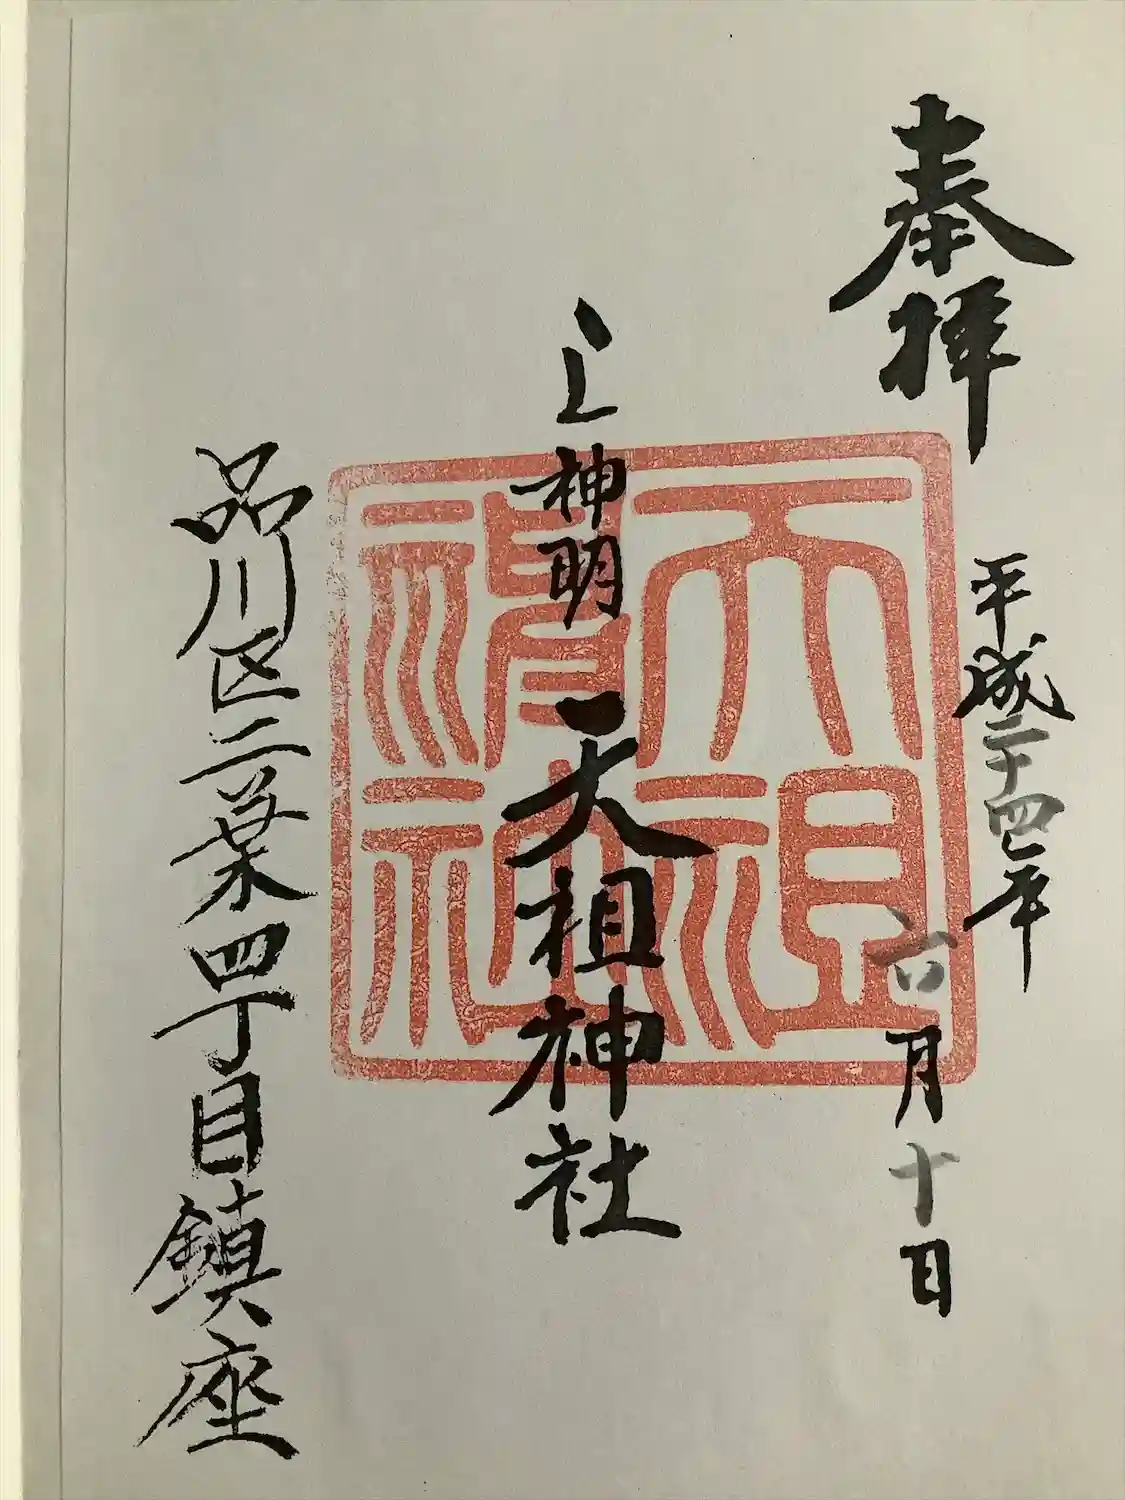 奉拝
平成二十四年
六月十日
上神明
天祖神社
品川区二葉四丁目鎮座
天祖
神社